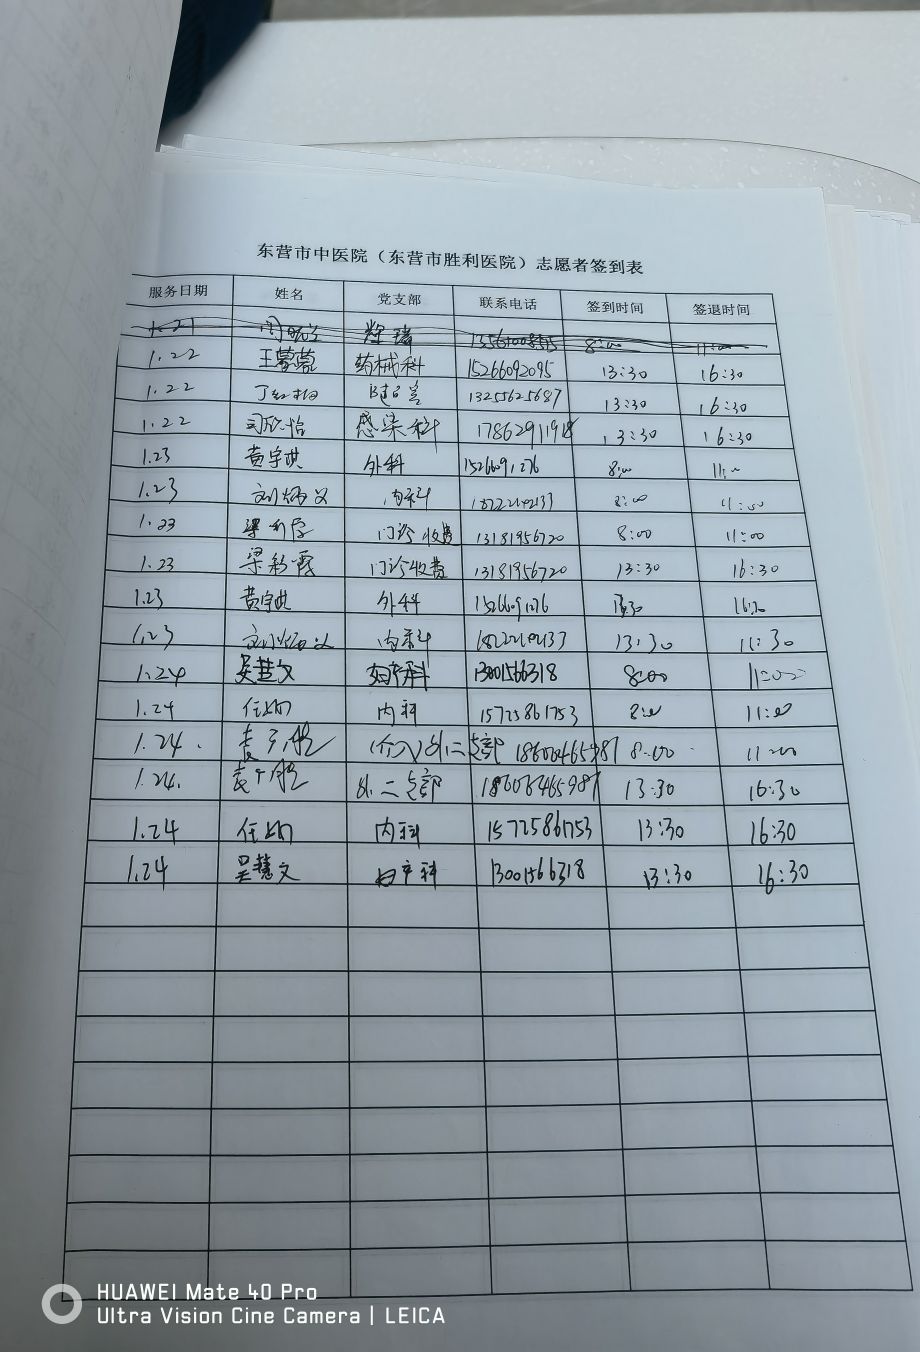 东营市中医院（东营市胜利医院）志愿者签到表
服务日期 姓名 党支部 联系电话 签到时间 签退时间
1.21 8:00 11:00
1.22 王蒙蒙 药械科 15266092095 13:30 16:30
1.22 13255625687 13:30 16:30
1.22 司欣怡 感染科 17862911918 13:30 16:30
1.23 黄宇 外科 8:00 11:00
1.23 刘炳义 内科 8:00 11:00
1.23 梁 门诊收费 13181956720 8:00 11:00
1.23 梁彩霞 门诊收费 13181956720 13:30 16:30
1.23 黄宇 外科 13:30 16:30
1.23 刘炳义 内科 13:30 11:30
1.24 吴慧文 妇产科 13001566318 8:00 11:00
1.24 任 内科 15725861753 8:00 11:00
1.24. (介入)外二支部 8:00 11:00
1.24. 外二支部 13:30 16:30
1.24 任 内科 15725861753 13:30 16:30
1.24 吴慧文 妇产科 13001566318 13:30 16:30
HUAWEI Mate 40 Pro
Ultra Vision Cine Camera | LEICA